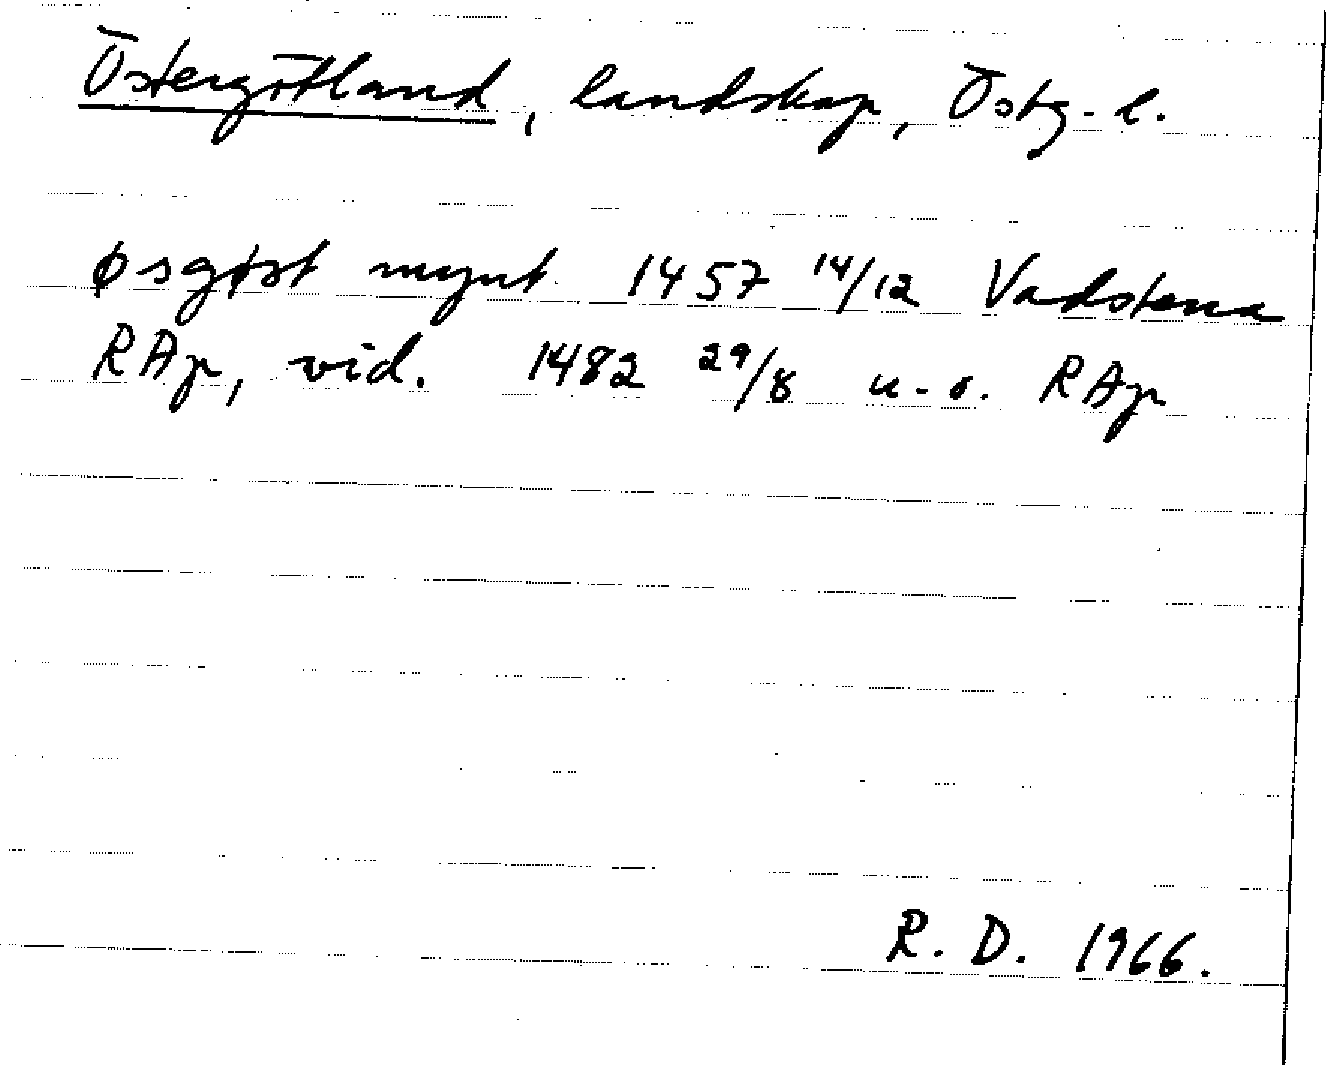 Östergötland, landskap, Östg. l.
øsgøst mynt 1457 14/12 Vadstena
RAp, vid. 1482 29/8 u.o. RAp
R. D. 1966.